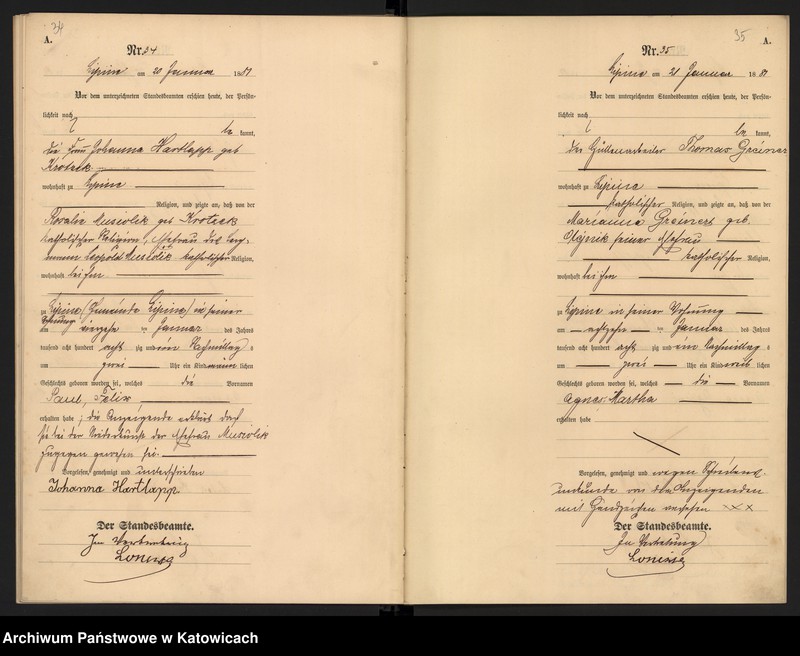 34
A.
Nr. 34
Lipine am 20 Januar 1881
Vor dem unterzeichneten Standesbeamten erschien heute, der Persön-
lichkeit nach
be kannt,
die Frau Johanna Hartlapp geb
Krotek
wohnhaft zu Lipine
Religion, und zeigte an, daß von der
Rosalie Musiolik geb Krotek
katholischer Religion, Ehefrau des Berg-
mann Leopold Musiolik katholischer Religion,
wohnhaft bei ihm
zu Lipine (Gemeinde Lipine) in seiner
Wohnung
am vierzehn ten Januar des Jahres
tausend acht hundert acht zig und ein Nachmittag s
um zwei Uhr ein Kind männ lichen
Geschlechts geboren worden sei, welches die Vornamen
Paul, Felix
erhalten habe; die Anzeigende erklärt daß
sie bei der Niederkunft der Ehefrau Musiolik
zugegen gewesen sei.
Vorgelesen, genehmigt und unterschrieben
Johanna Hartlapp
Der Standesbeamte.
In Vertretung
35
A.
Nr. 35
Lipine am 20 Januar 1881
Vor dem unterzeichneten Standesbeamten erschien heute, der Persön-
lichkeit nach
be kannt,
der Hüttenarbeiter Thomas Greiner
wohnhaft zu Lipine
katholischer Religion, und zeigte an, daß von der
Marianna Greinert geb.
seiner Ehefrau
katholischer Religion,
wohnhaft bei ihm
zu Lipine in seiner Wohnung
am achtzehn ten Januar des Jahres
tausend acht hundert acht zig und ein Nachmittag s
um zwei Uhr ein Kind weib lichen
Geschlechts geboren worden sei, welches die Vornamen
Agnes Martha
erhalten habe
Vorgelesen, genehmigt und wegen Schreibens-
unkunde von dem Anzeigenden
mit Handzeichen versehen xxx
Der Standesbeamte.
In Vertretung
Archiwum Państwowe w Katowicach